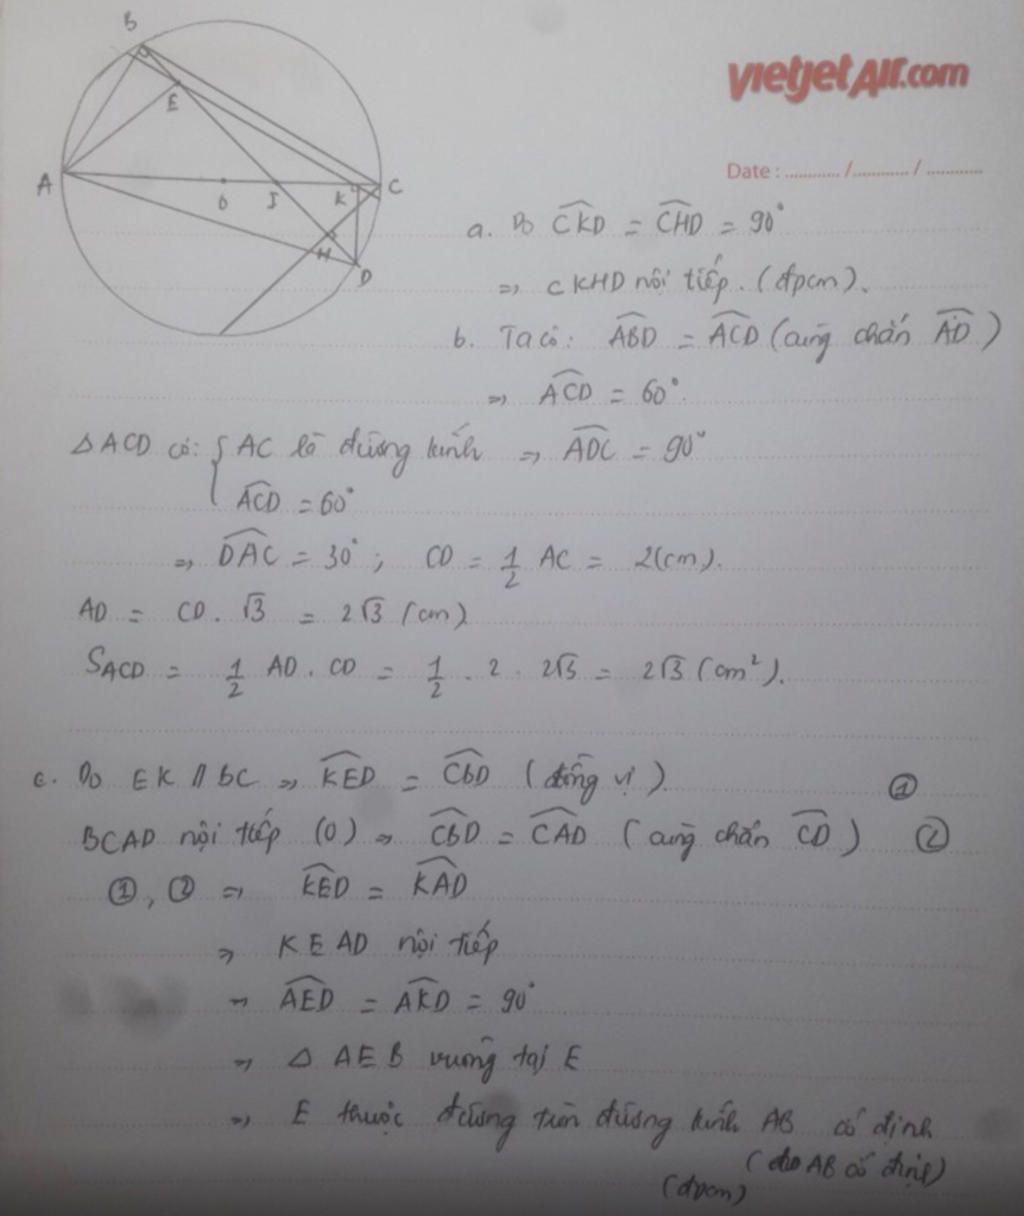 B
E
A
O
I
K
C
H
D
vietjetAir.com
Date : ............ /............ / ............
a. Do \widehat{CKD} = \widehat{CHD} = 90°
=> CKHD nội tiếp. (đpcm).
b. Ta có: \widehat{ABD} = \widehat{ACD} (cùng chắn \widehat{AD})
=> \widehat{ACD} = 60°.
Δ ACD có: { AC là đường kính => \widehat{ADC} = 90°
\widehat{ACD} = 60°
=> \widehat{DAC} = 30° ; CD = 1/2 AC = 2(cm).
AD = CD . √3 = 2√3 (cm)
S_{ACD} = 1/2 AD . CD = 1/2 . 2 . 2√3 = 2√3 (cm²).
c. Do EK // BC => \widehat{KED} = \widehat{CBD} (đồng vị). ①
BCAD nội tiếp (O) => \widehat{CBD} = \widehat{CAD} (cùng chắn \widehat{CD}) ②
①, ② => \widehat{KED} = \widehat{KAD}
=> KEAD nội tiếp
=> \widehat{AED} = \widehat{AKD} = 90°
=> Δ AEB vuông tại E
=> E thuộc đường tròn đường kính AB cố định
(do AB cố định)
(đpcm)